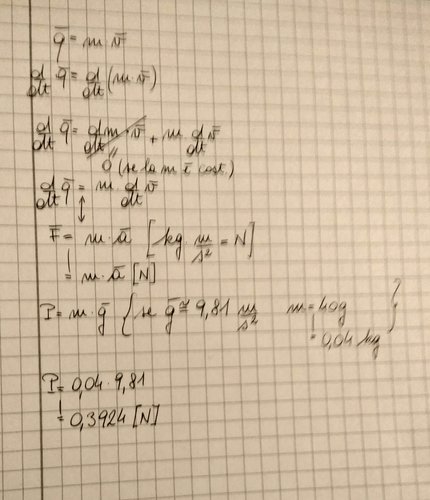 q̄ = m v̄
d/dt q̄ = d/dt (m v̄)
d/dt q̄ = dm/dt · v̄ + m · d/dt v̄
0 (se la m è cost.)
d/dt q̄ = m · d/dt v̄
F̄ = m · ā [kg · m/s² = N]
= m · ā [N]
P = m · ḡ { se ḡ ≅ 9,81 m/s² m = 40g }
= 0,04 kg
P = 0,04 · 9,81
= 0,3924 [N]